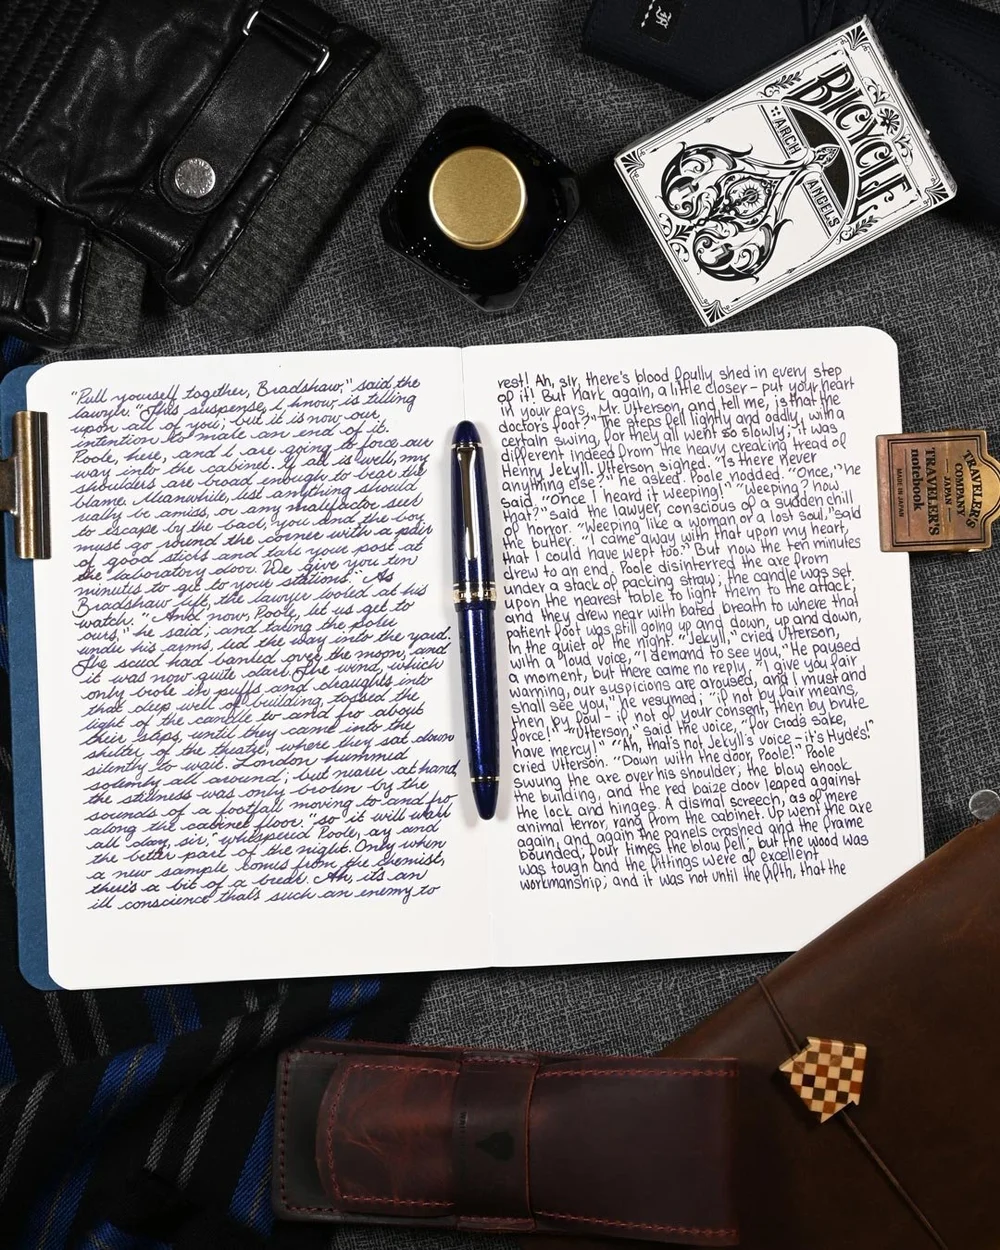 BICYCLE
ARCH
ANGELS
"Pull yourself together, Bradshaw," said the
lawyer. "This suspense, I know, is telling
upon all of you; but it is now our
intention to make an end of it.
Poole, here, and I are going to force our
way into the cabinet. If all is well, my
shoulders are broad enough to bear the
blame. Meanwhile, lest anything should
really be amiss, or any malefactor seek
to escape by the back, you and the boy
must go round the corner with a pair
of good sticks and take your post at
the laboratory door. We give you ten
minutes to get to your stations." As
Bradshaw left, the lawyer looked at his
watch. "And now, Poole, let us get to
ours," he said; and taking the poker
under his arms, led the way into the yard.
The scud had banked over the moon, and
it was now quite dark. The wind, which
only broke in puffs and draughts into
that deep well of building, tossed the
light of the candle to and fro about
their steps, until they came into the
shelter of the theatre, where they sat down
silently to wait. London hummed
solemnly all around; but nearer at hand,
the stillness was only broken by the
sounds of a footfall moving to and fro
along the cabinet floor. "so it will walk
all day, sir," whispered Poole, ay and
the better part of the night. Only when
a new sample comes from the chemist,
there's a bit of a break. Ah, it's an
ill conscience that's such an enemy to
rest! Ah, sir, there's blood foully shed in every step
of it! But hark again, a little closer - put your heart
in your ears, Mr. Utterson, and tell me, is that the
doctor's foot?" The steps fell lightly and oddly, with a
certain swing, for they all went so slowly; it was
different indeed from the heavy creaking tread of
Henry Jekyll. Utterson sighed. "Is there never
anything else?" he asked. Poole nodded. "Once," he
said. "Once I heard it weeping!" "Weeping? how
that?" said the lawyer, conscious of a sudden chill
of horror. "Weeping like a woman or a lost soul," said
the butler. "I came away with that upon my heart,
that I could have wept too." But now the ten minutes
drew to an end. Poole disinterred the axe from
under a stack of packing straw; the candle was set
upon the nearest table to light them to the attack;
and they drew near with bated breath to where that
patient foot was still going up and down, up and down,
in the quiet of the night. "Jekyll," cried Utterson,
with a loud voice, "I demand to see you." He paused
a moment, but there came no reply. "I give you fair
warning, our suspicions are aroused, and I must and
shall see you," he resumed; "if not by fair means,
then by foul - if not of your consent, then by brute
force!" "Utterson," said the voice, "for God's sake,
have mercy!" "Ah, that's not Jekyll's voice - it's Hyde's!"
cried Utterson. "Down with the door, Poole!" Poole
swung the axe over his shoulder; the blow shook
the building, and the red baize door leaped against
the lock and hinges. A dismal screech, as of mere
animal terror, rang from the cabinet. Up went the axe
again, and again the panels crashed and the frame
bounded; four times the blow fell; but the wood was
was tough and the fittings were of excellent
workmanship; and it was not until the fifth, that the
TRAVELER'S
COMPANY
JAPAN
TRAVELER'S
notebook
MADE IN JAPAN